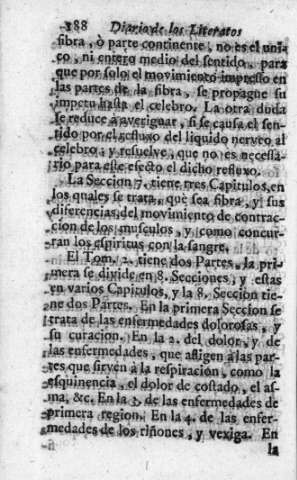 188 Diario de los Literatos
fibra, ò parte continente, no es el uni-
co, ni entero medio del sentido, para
que por solo el movimiento impresso en
las partes de la fibra, se propague su
impetu hasta el celebro. La otra duda
se reduce à averiguar, si se causa el sen-
tido por el refluxo del liquido nerveo al
celebro; y resuelve, que no es necessa-
rio para este efecto el dicho refluxo.
La Seccion 7. tiene tres Capitulos, en
los quales se trata, què sea fibra, y sus
diferencias, del movimiento de contrac-
cion de los musculos, y como concur-
ran los espiritus con la sangre.
El Tom. 2. tiene dos Partes, la pri-
mera se divide en 8. Secciones, y estas
en varios Capitulos, y la 8. Seccion tie-
ne dos Partes. En la primera Seccion se
trata de las enfermedades dolorosas, y
su curacion. En la 2. del dolor, y de
las enfermedades, que afligen à las par-
tes que sirven à la respiracion, como la
esquinencia, el dolor de costado, el as-
ma, &c. En la 3. de las enfermedades de
primera region. En la 4. de las enfer-
medades de los riñones, y vexiga. En
la